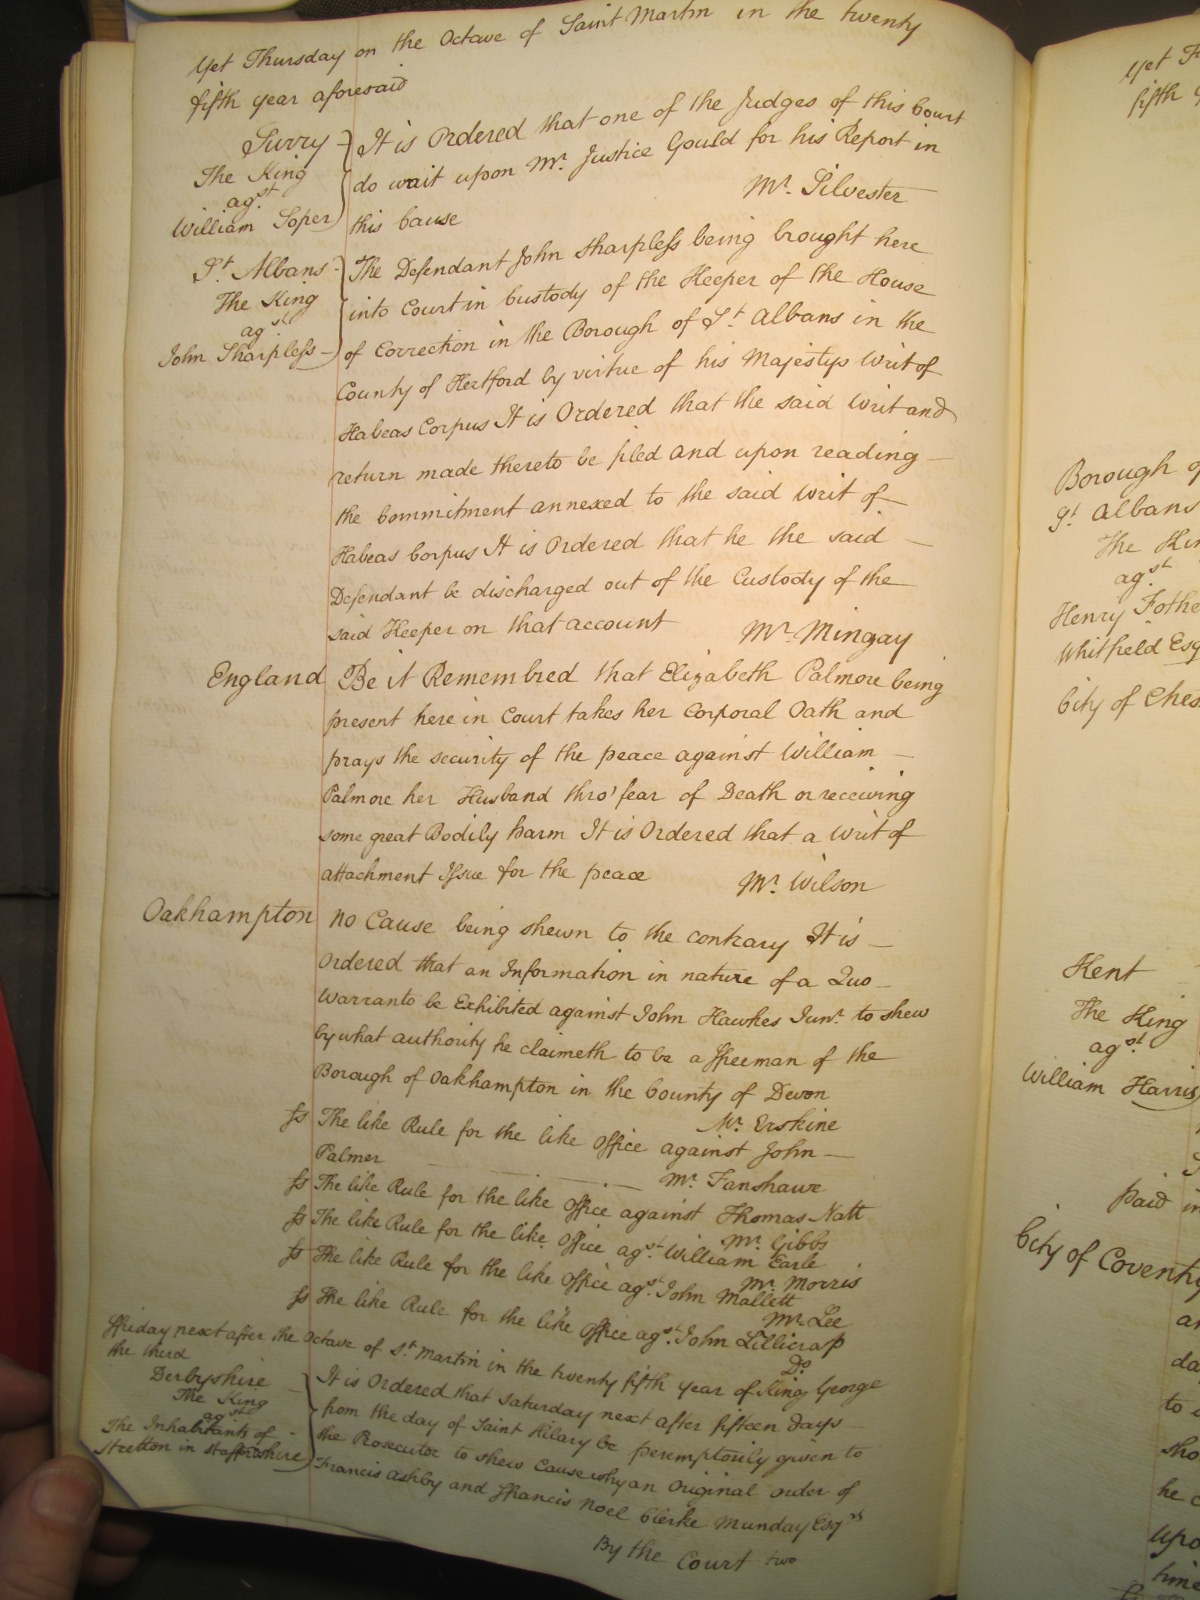 Yet Thursday on the Octave of Saint Martin in the twenty
fifth year aforesaid
Surry
The King
agst.
William Soper
It is Ordered that one of the Judges of this Court
do wait upon Mr. Justice Gould for his Report in
this Cause
Mr. Silvester
St. Albans
The King
agst.
John Sharpless
The Defendant John Sharpless being brought here
into Court in Custody of the Keeper of the House
of Correction in the Borough of St. Albans in the
County of Hertford by virtue of his Majestys Writ of
Habeas Corpus It is Ordered that the said Writ and
return made thereto be filed and upon reading
the Commitment annexed to the said Writ of
Habeas Corpus It is Ordered that he the said
Defendant be discharged out of the Custody of the
said Keeper on that account
Mr. Mingay
England
Be it Remembred that Elizabeth Palmore being
present here in Court takes her Corporal Oath and
prays the security of the peace against William
Palmore her Husband thro' fear of Death or receiving
some great Bodily harm It is Ordered that a Writ of
attachment Issue for the peace
Mr. Wilson
Oakhampton
no Cause being shewn to the contrary It is
Ordered that an Information in nature of a Quo
Warranto be Exhibited against John Hawkes Junr. to shew
by what authority he claimeth to be a ffreeman of the
Borough of Oakhampton in the County of Devon
Mr. Erskine
ss The like Rule for the like Office against John
Palmer
Mr. Fanshawe
ss The like Rule for the like Office against Thomas Natt
Mr. Gibbs
ss The like Rule for the like Office agst. William Earle
Mr. Morris
ss The like Rule for the like Office agst. John Mallett
Mr. Lee
ss The like Rule for the like Office agst. John Lillicrap
Do.
ffriday next after the Octave of St. Martin in the twenty fifth year of King George
the third
Derbyshire
The King
agst.
The Inhabitants of
Stretton in Staffordshire
It is Ordered that Saturday next after fifteen days
from the day of Saint Hilary be peremptorily given to
the Prosecutor to shew Cause why an Original order of
Francis Ashby and ffrancis Noel Clerke Munday Esqrs
By the Court two
Yet
fifth
Borough of
St. Albans
The Kin
agst.
Henry Fothe
Whitfield Esq
City of Ches
Kent
The King
agst.
William Harris
Paid in
City of Coventry
an
da
to
sho
he c
upo
time